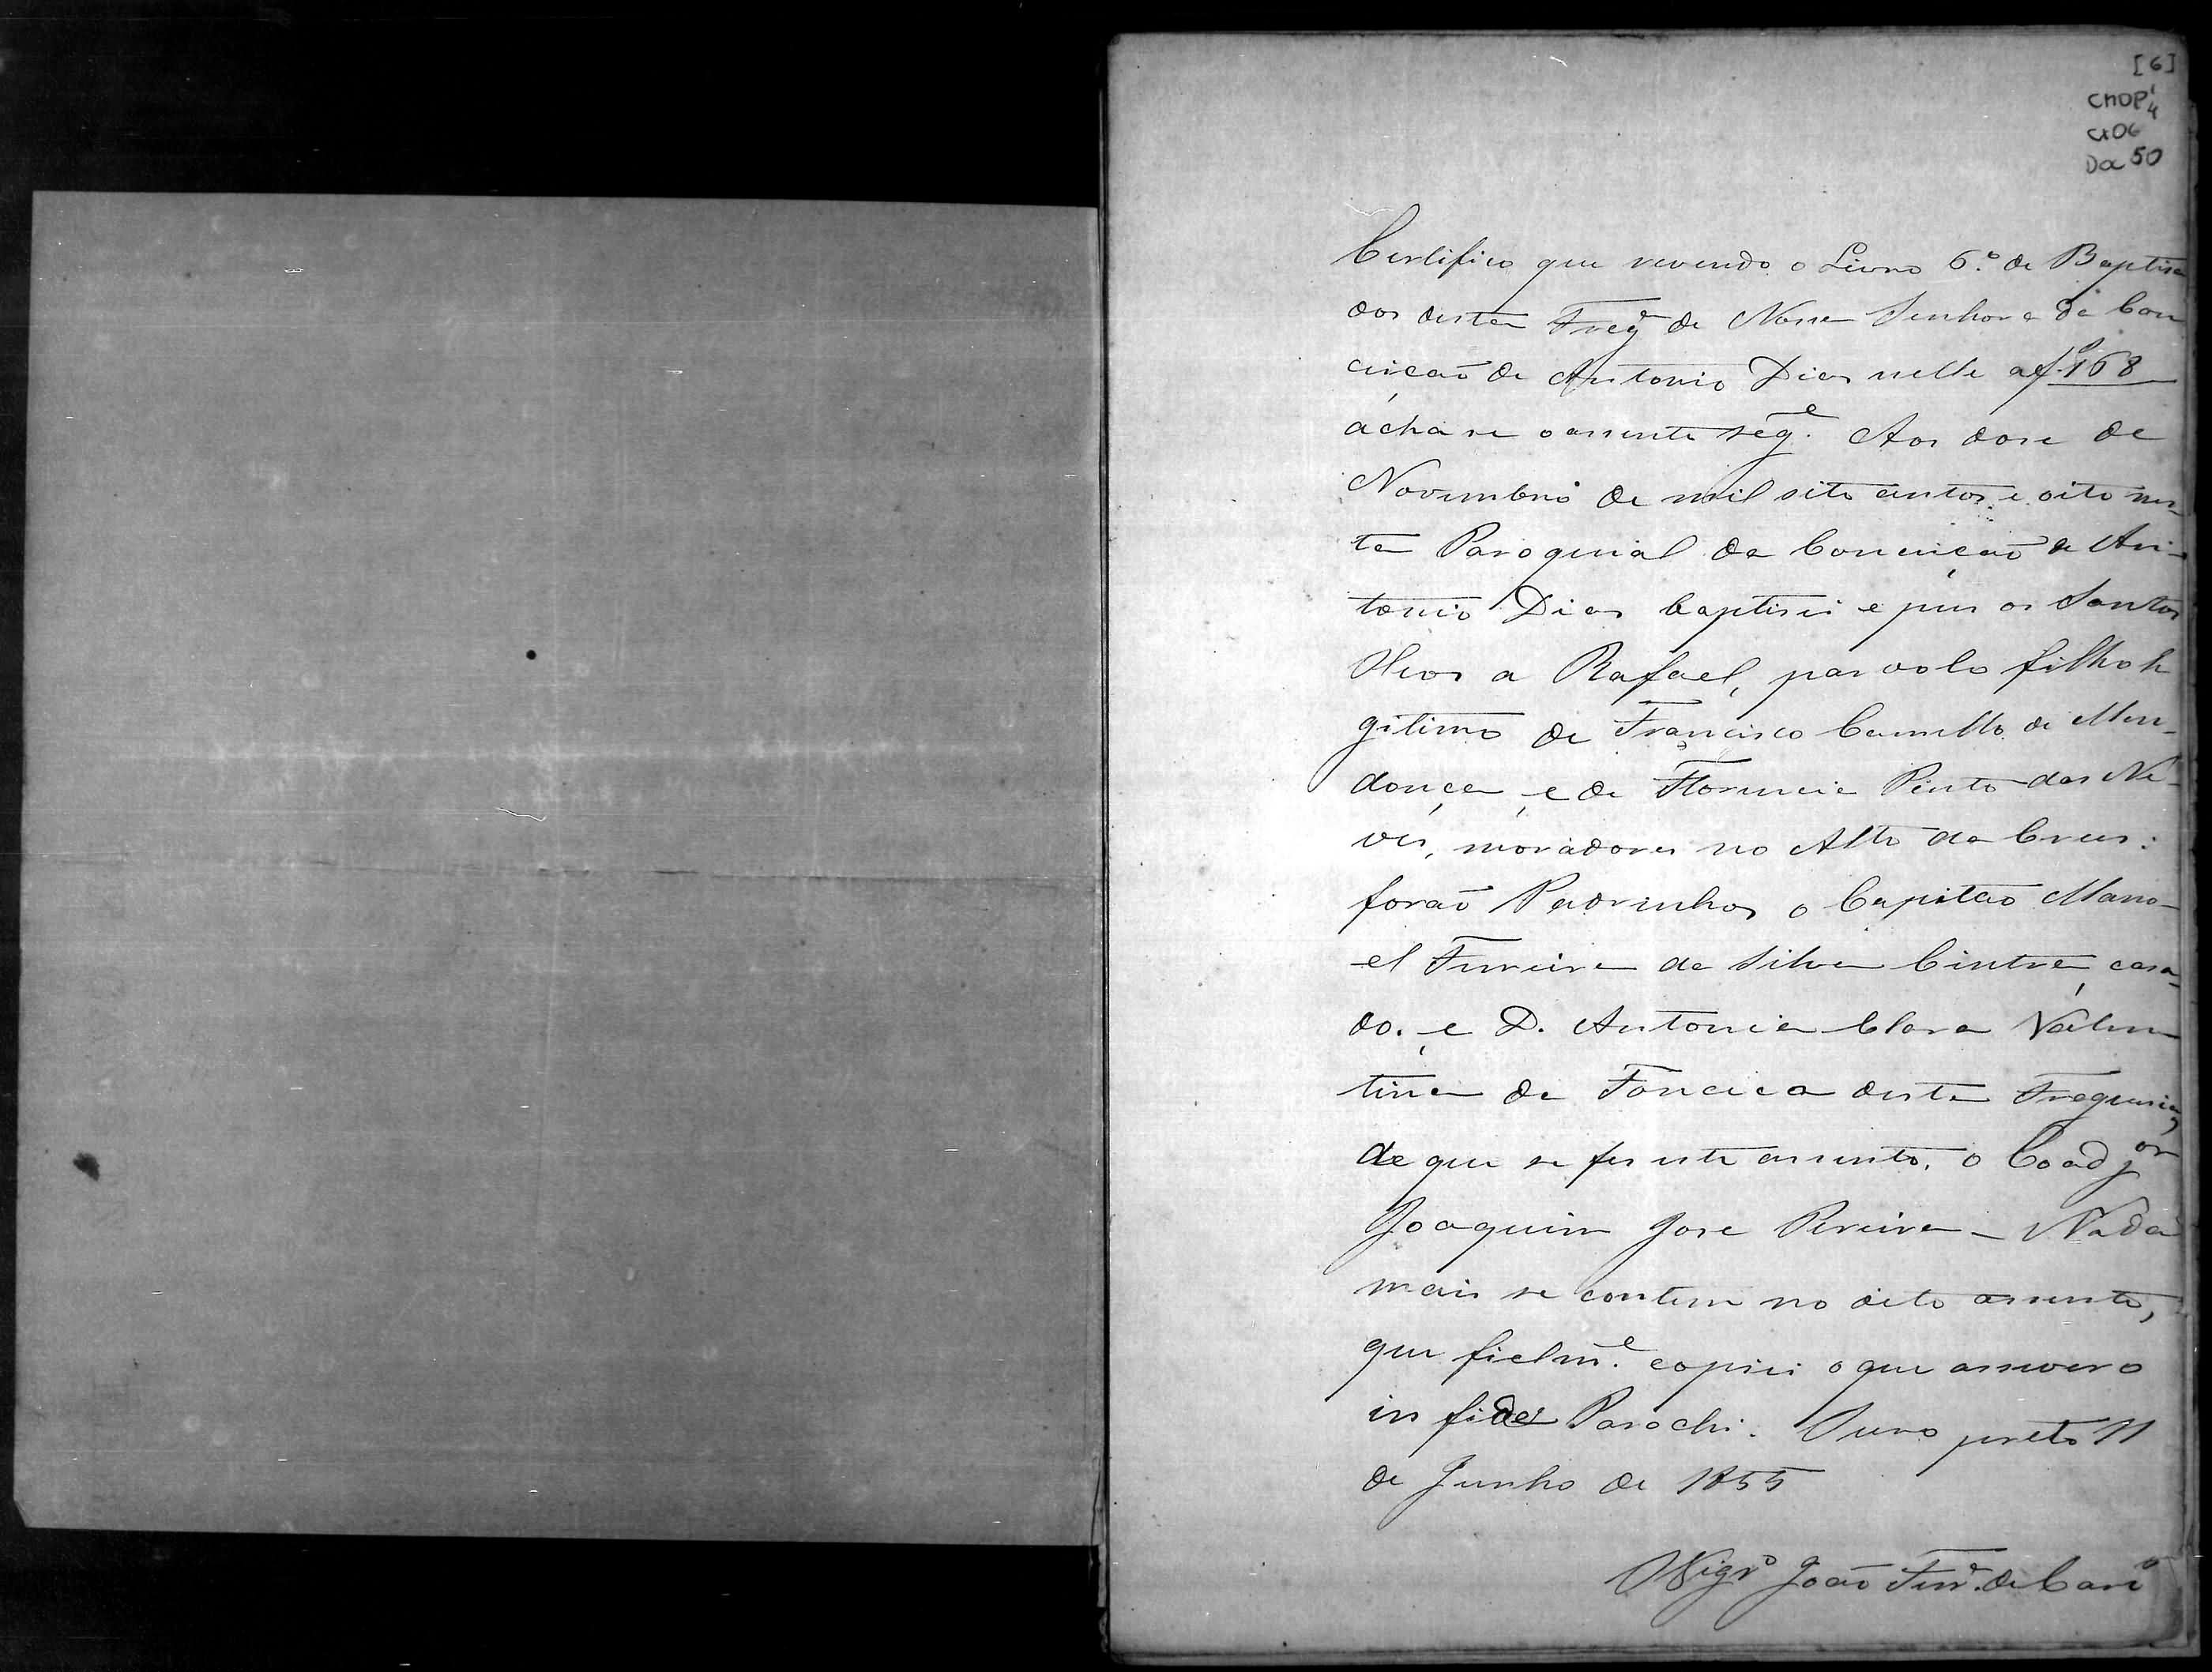 [6]
CMOP 1/4
CX06
Doc 50
Certifico que revendo o Livro 6.º de Baptisa
dos desta Freg.ª de Nossa Senhora da Con
ceicaõ de Antonio Dias nelle a fˢ. 168
acha se o assento seg.ᵉ Aos dose de
Novembro de mil sete centos e oito nes
ta Paroquial da Conceiçaõ de An-
tonio Dias baptisei e pus os Santos
Oleos a Rafael, parvolo filho le
gitimo de Francisco Camello de Men-
donça, e de Florencia Pinto das Ne-
ves, moradores no Alto da Crus:
foraõ Padrinhos o Capitaõ Mano-
el Ferreira da Silva Cintra, casa-
do, e D. Antonia Clara Valen
tina da Fonceca desta Freguesia,
de que se fes este assento. o Coadjᵒʳ
Joaquim Jose Pereira - Nada
mais se contem no dito assento,
que fielm.ᵉ copiei o que assevero
in fide Parochi. Ouro preto 11
de Junho de 1855
O Vigrº João Ferr.ª de Carº